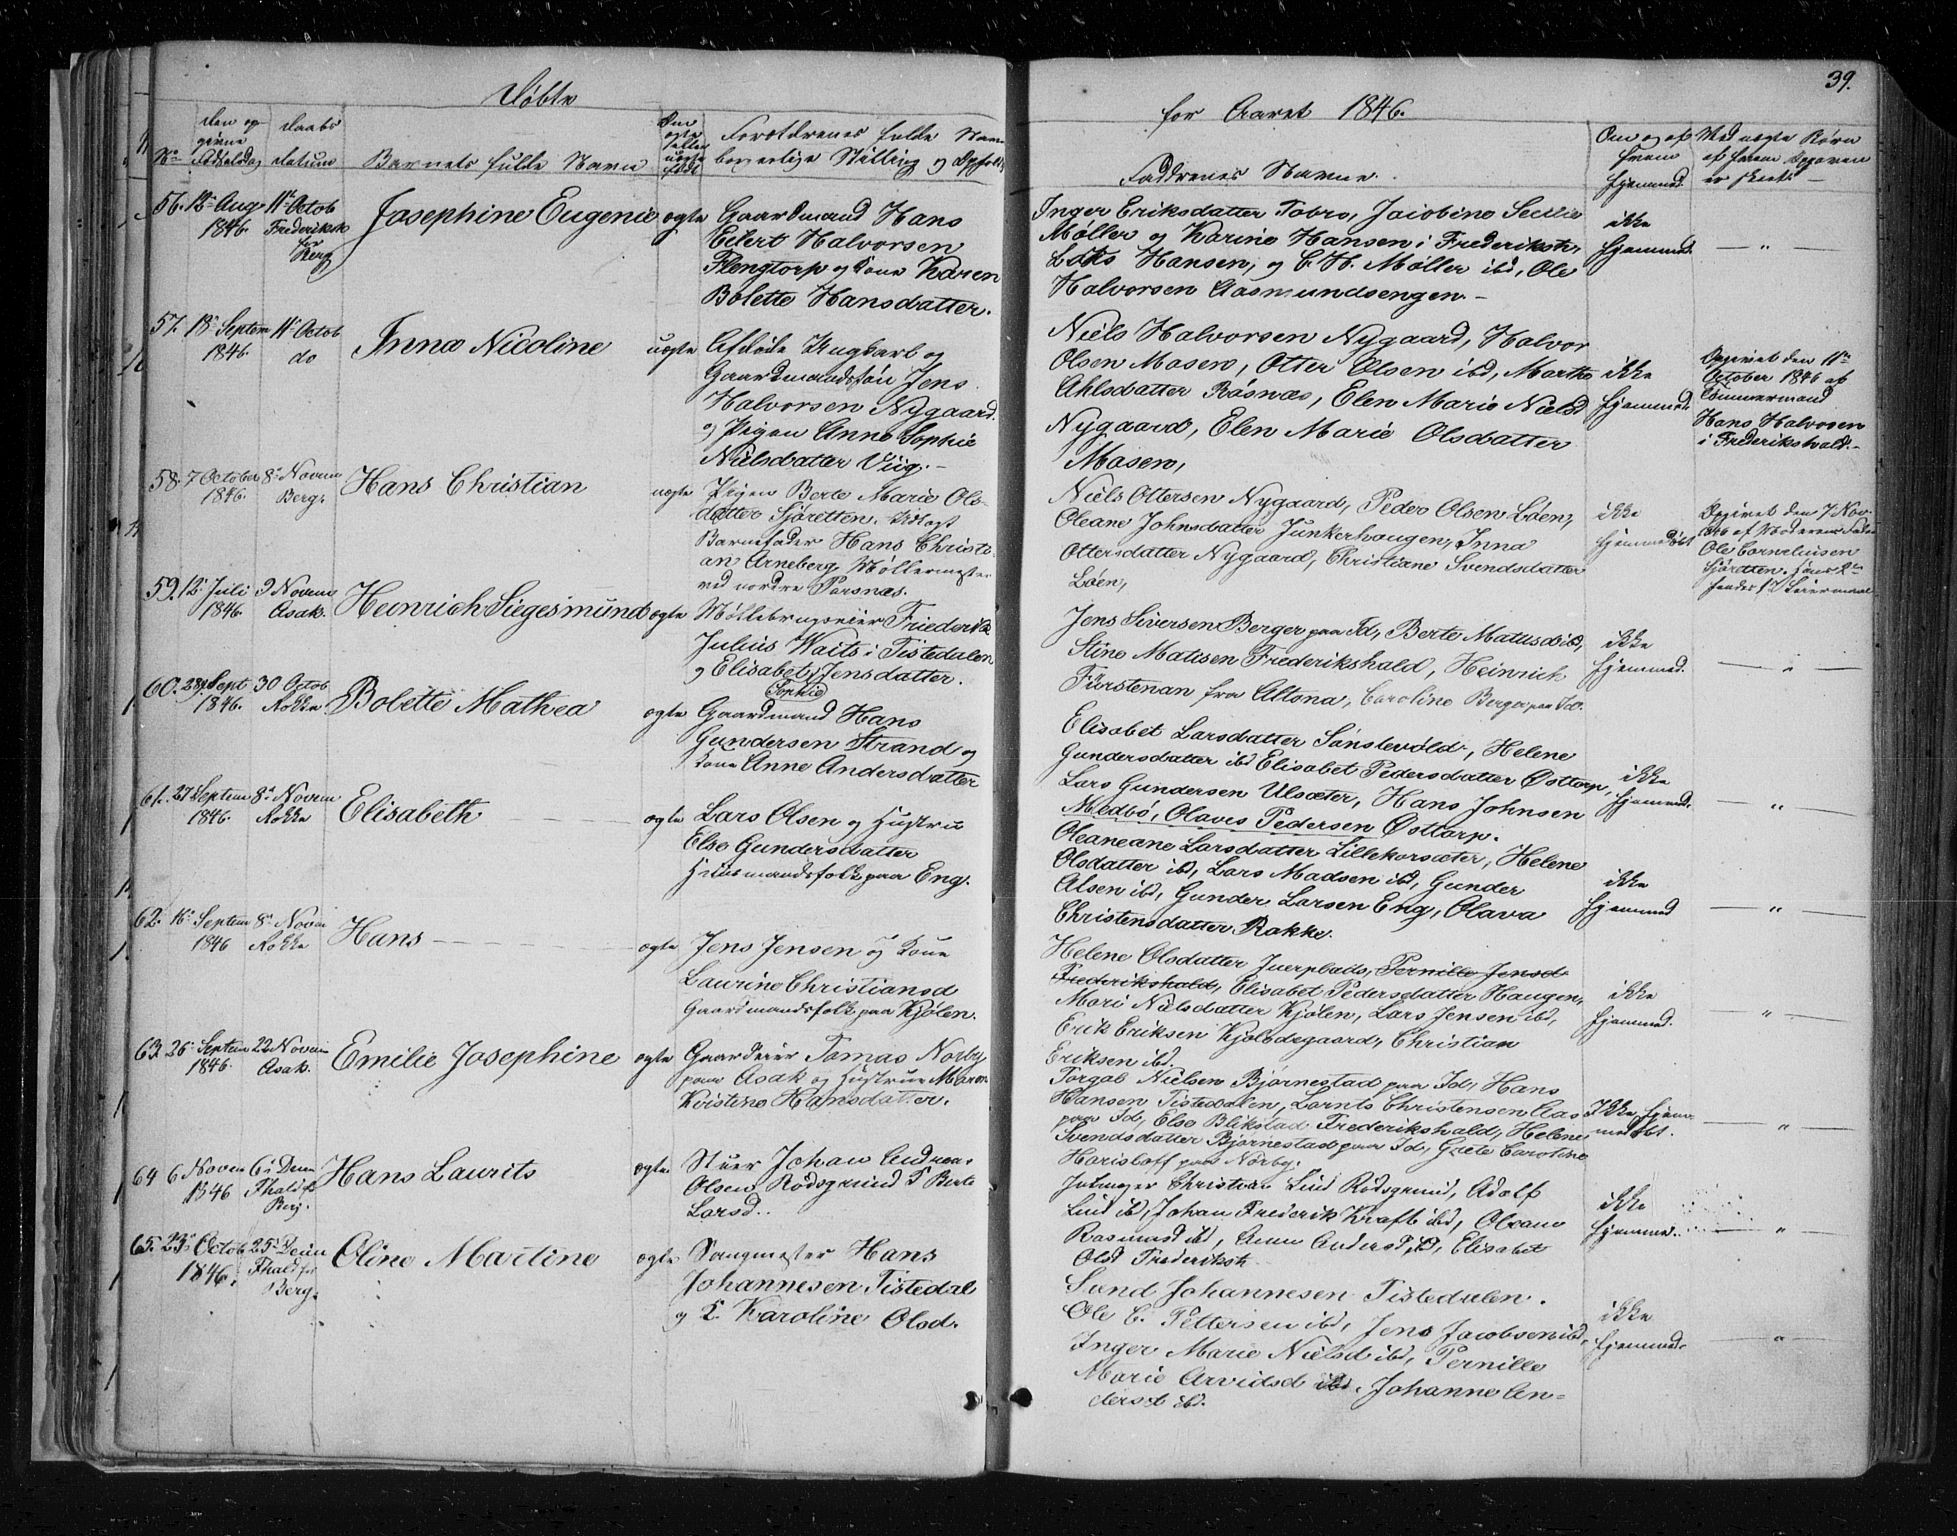 Døbte
for Aaret 1846.
39.
Den opgivne Fødselsdag
Daabs Datum
Barnets fulde Navn
Om ægte eller uægte født
Forældrenes fulde Navn
borgerlige Stilling og Opholds
Faddrenes Navne.
Om og af hvem hjemmed.
Ved uægte Børn
af hvem Opgaven
er skeet.
56. 12te Aug 1846. 11te Octob Frederiksh for Berg
Josephine Eugenie ægte
Gaardmand Hans
Eilert Halvorsen
Flengtorp og Kone Karen
Bolette Hansdatter.
Inger Eriksdatter Tobro, Jacobine Secilie
Møller og Karine Hansen i Frederiksh,
Hansen, og C. H. Møller ibd, Ole
Halvorsen Aasmundsengen.
ikke
hjemmed.
57. 18 Septem 1846. 11 Octob do
Inna Nicoline uægte
Afdøde Ungkarl og
Gaardmandssøn Jens
Halvorsen Nygaard.
og Pigen Anne Sophie
Nielsdatter Viig.
Niels Halvorsen Nygaard, Halvor
Olsen Mosen, Otter Olsen ibd, Marthe
Ahlsdatter Røsnæs, Elen Marie Nielsd
Nygaard, Elen Marie Olsdatter
Mosen,
ikke
hjemmed.
Opgivet den 11te
October 1846 af
Tømmermand
Hans Halvorsen
i Frederikshald.
58. 7 October 1846. 8 Novem Berg.
Hans Christian uægte
Pigen Berte Marie Ols-
datter Sjøretten. Udlagt
Barnefader Hans Christi-
an Arneberg Møllermester
ved nordre Porsnæs.
Niels Ottersen Nygaard, Peder Olsen Løen,
Oleane Johnsdatter Junkerhougen, Inna
Ottersdatter Nygaard, Christiane Svendsdatter
Løen,
ikke
hjemmedøbt
Opgivet den 7 Nov-
1846 af Moderens Fader
Ole Corneliusen
Sjøretten.
59. 12 Juli 1846. 9 Novem Asak.
Heinrich Siegesmund ægte
Møllebrugseier Friederik
Julius Waits i Tistedalen
og Elisabet Jensdatter.
Sophie
Jens Siversen Berger paa Id, Berte Matusd ibd,
Stine Mattsen Frederikshald, Heinrich
Fürstenan fra Altona, Caroline Berger paa Id.
ikke
hjemmed.
60. 28 Sept 1846. 30 Octob Rokke
Bolette Mathea ægte
Gaardmand Hans
Gundersen Strand og
Kone Anne Andersdatter
Elisabet Larsdatter Sønslevold, Helene
Gundersdatter ibd Elisabet Pedersdatter Østtorp,
Lars Gundersen Ulsæter, Hans Johnsen
Medbø, Olaves Pedersen Østtorp.
ikke
hjemmed.
61. 27 Septem 1846. 8 Novem Rokke
Elisabeth ægte
Lars Olsen og Hustru
Else Gundersdatter
Huusmandsfolk paa Eng.
Oleaneane Larsdatter Lillekorsæter, Helene
Olsdatter ibd, Lars Madsen ibd, Gunder
Olsen ibd, Gunder Larsen Eng, Olava
Christensdatter Rokke.
ikke
hjemmed
62. 16 Septem 1846 8 Novem Rokke
Hans ægte
Jens Jensen og Kone
Laurine Christiansd
Gaardmandsfolk paa Kjølen.
Helene Olsdatter Iverplads, Pernille Jensd
Frederikshald, Elisabet Pedersdatter Haugen,
Mari Nielsdatter Kjølen, Lars Jensen ibd,
Erik Eriksen Kjølsdegaard, Christian
Eriksen ibd.
ikke
hjemmed.
63. 26 Septem 1846. 22 Novem Asak.
Emilie Josephine ægte
Gaardeier Tomas Norby
paa Asak og Hustrue Maren
Kristine Hansdatter.
Torgal Nielsen Bjørnestad paa Id, Hans
Hansen Tistedalen, Larnts Christensen Aas
paa Id, Else Blikstad Frederikshald, Helene
Svendsdatter Bjørnestad paa Id, Grete Caroline
Horisloff paa Norby.
Ikke hjem-
medøbt.
64 6 Novem 1846 6 Decem Fhald for Berg.
Hans Laurits ægte
Stuer Johan Andreas
Olsen Rødsgrund & Berte
Larsd.
Christian Lind Rødsgrund, Adolf
Lind ibd, Johan Frederik Kraft ibd, Oleane
Rasmusd ibd, Anne Andersd ibd, Elisabet
Olsd Frederiksh
ikke
hjemmed.
65. 23 Octob 1846. 25 Decem Fhald for Berg.
Oline Martine ægte
Saugmester Hans
Johannesen Tistedal
og K. Karoline Olsd.
Svend Johannesen Tistedalen.
Ole C. Pettersen ibd, Jens Jacobsen ibd,
Inger Marie Nielsd ibd, Pernille
Marie Arvidsd ibd, Johanne An-
dersd ibd.
ikke
hjemmed.